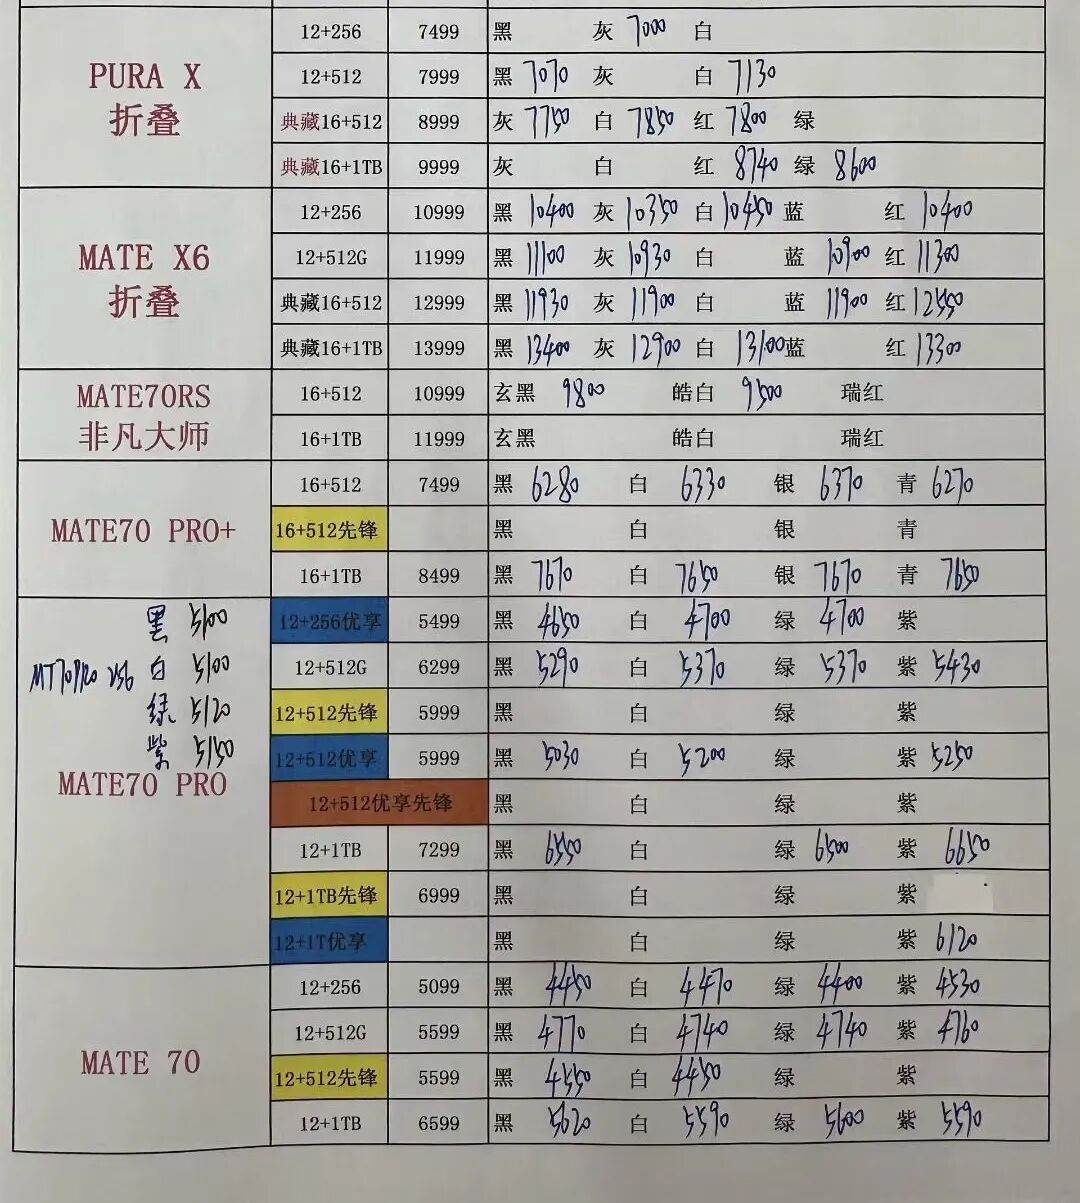 12+256 7499 黑 灰 7000 白
PURA X
折叠
12+512 7999 黑 7070 灰 白 7130
典藏16+512 8999 灰 7750 白 7850 红 7800 绿
典藏16+1TB 9999 灰 白 红 8740 绿 8600
MATE X6
折叠
12+256 10999 黑 10400 灰 10350 白 10450 蓝 红 10400
12+512G 11999 黑 11100 灰 10930 白 蓝 10900 红 11300
典藏16+512 12999 黑 11930 灰 11900 白 蓝 11900 红 12550
典藏16+1TB 13999 黑 13400 灰 12900 白 13100 蓝 红 13300
MATE70RS
非凡大师
16+512 10999 玄黑 9800 皓白 9500 瑞红
16+1TB 11999 玄黑 皓白 瑞红
MATE70 PRO+
16+512 7499 黑 6280 白 6330 银 6370 青 6270
16+512先锋 黑 白 银 青
16+1TB 8499 黑 7670 白 7650 银 7670 青 7650
黑 5100
MT70PRO 256 白 5100
绿 5120
紫 5150
MATE70 PRO
12+256优享 5499 黑 4650 白 4700 绿 4700 紫
12+512G 6299 黑 5290 白 5370 绿 5370 紫 5430
12+512先锋 5999 黑 白 绿 紫
12+512优享 5999 黑 5030 白 5200 绿 紫 5250
12+512优享先锋 黑 白 绿 紫
12+1TB 7299 黑 6550 白 绿 6500 紫 6650
12+1TB先锋 6999 黑 白 绿 紫
12+1T优享 黑 白 绿 紫 6120
MATE 70
12+256 5099 黑 4450 白 4470 绿 4400 紫 4530
12+512G 5599 黑 4770 白 4740 绿 4740 紫 4760
12+512先锋 5599 黑 4550 白 4450 绿 紫
12+1TB 6599 黑 5620 白 5590 绿 5600 紫 5590